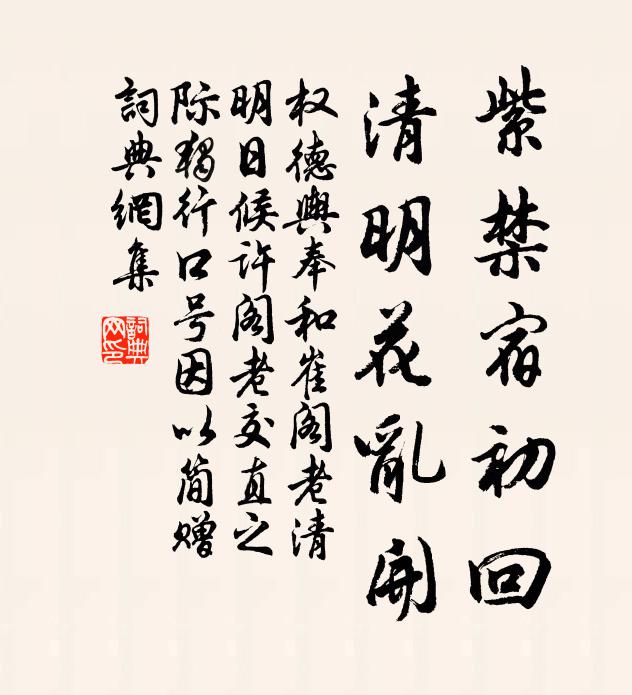 紫禁宿初回
清明花亂開
权德輿奉和崔阁老清
明日候许阁老交直之
际獨行口号因以简赠
詞典網集
詞典網印